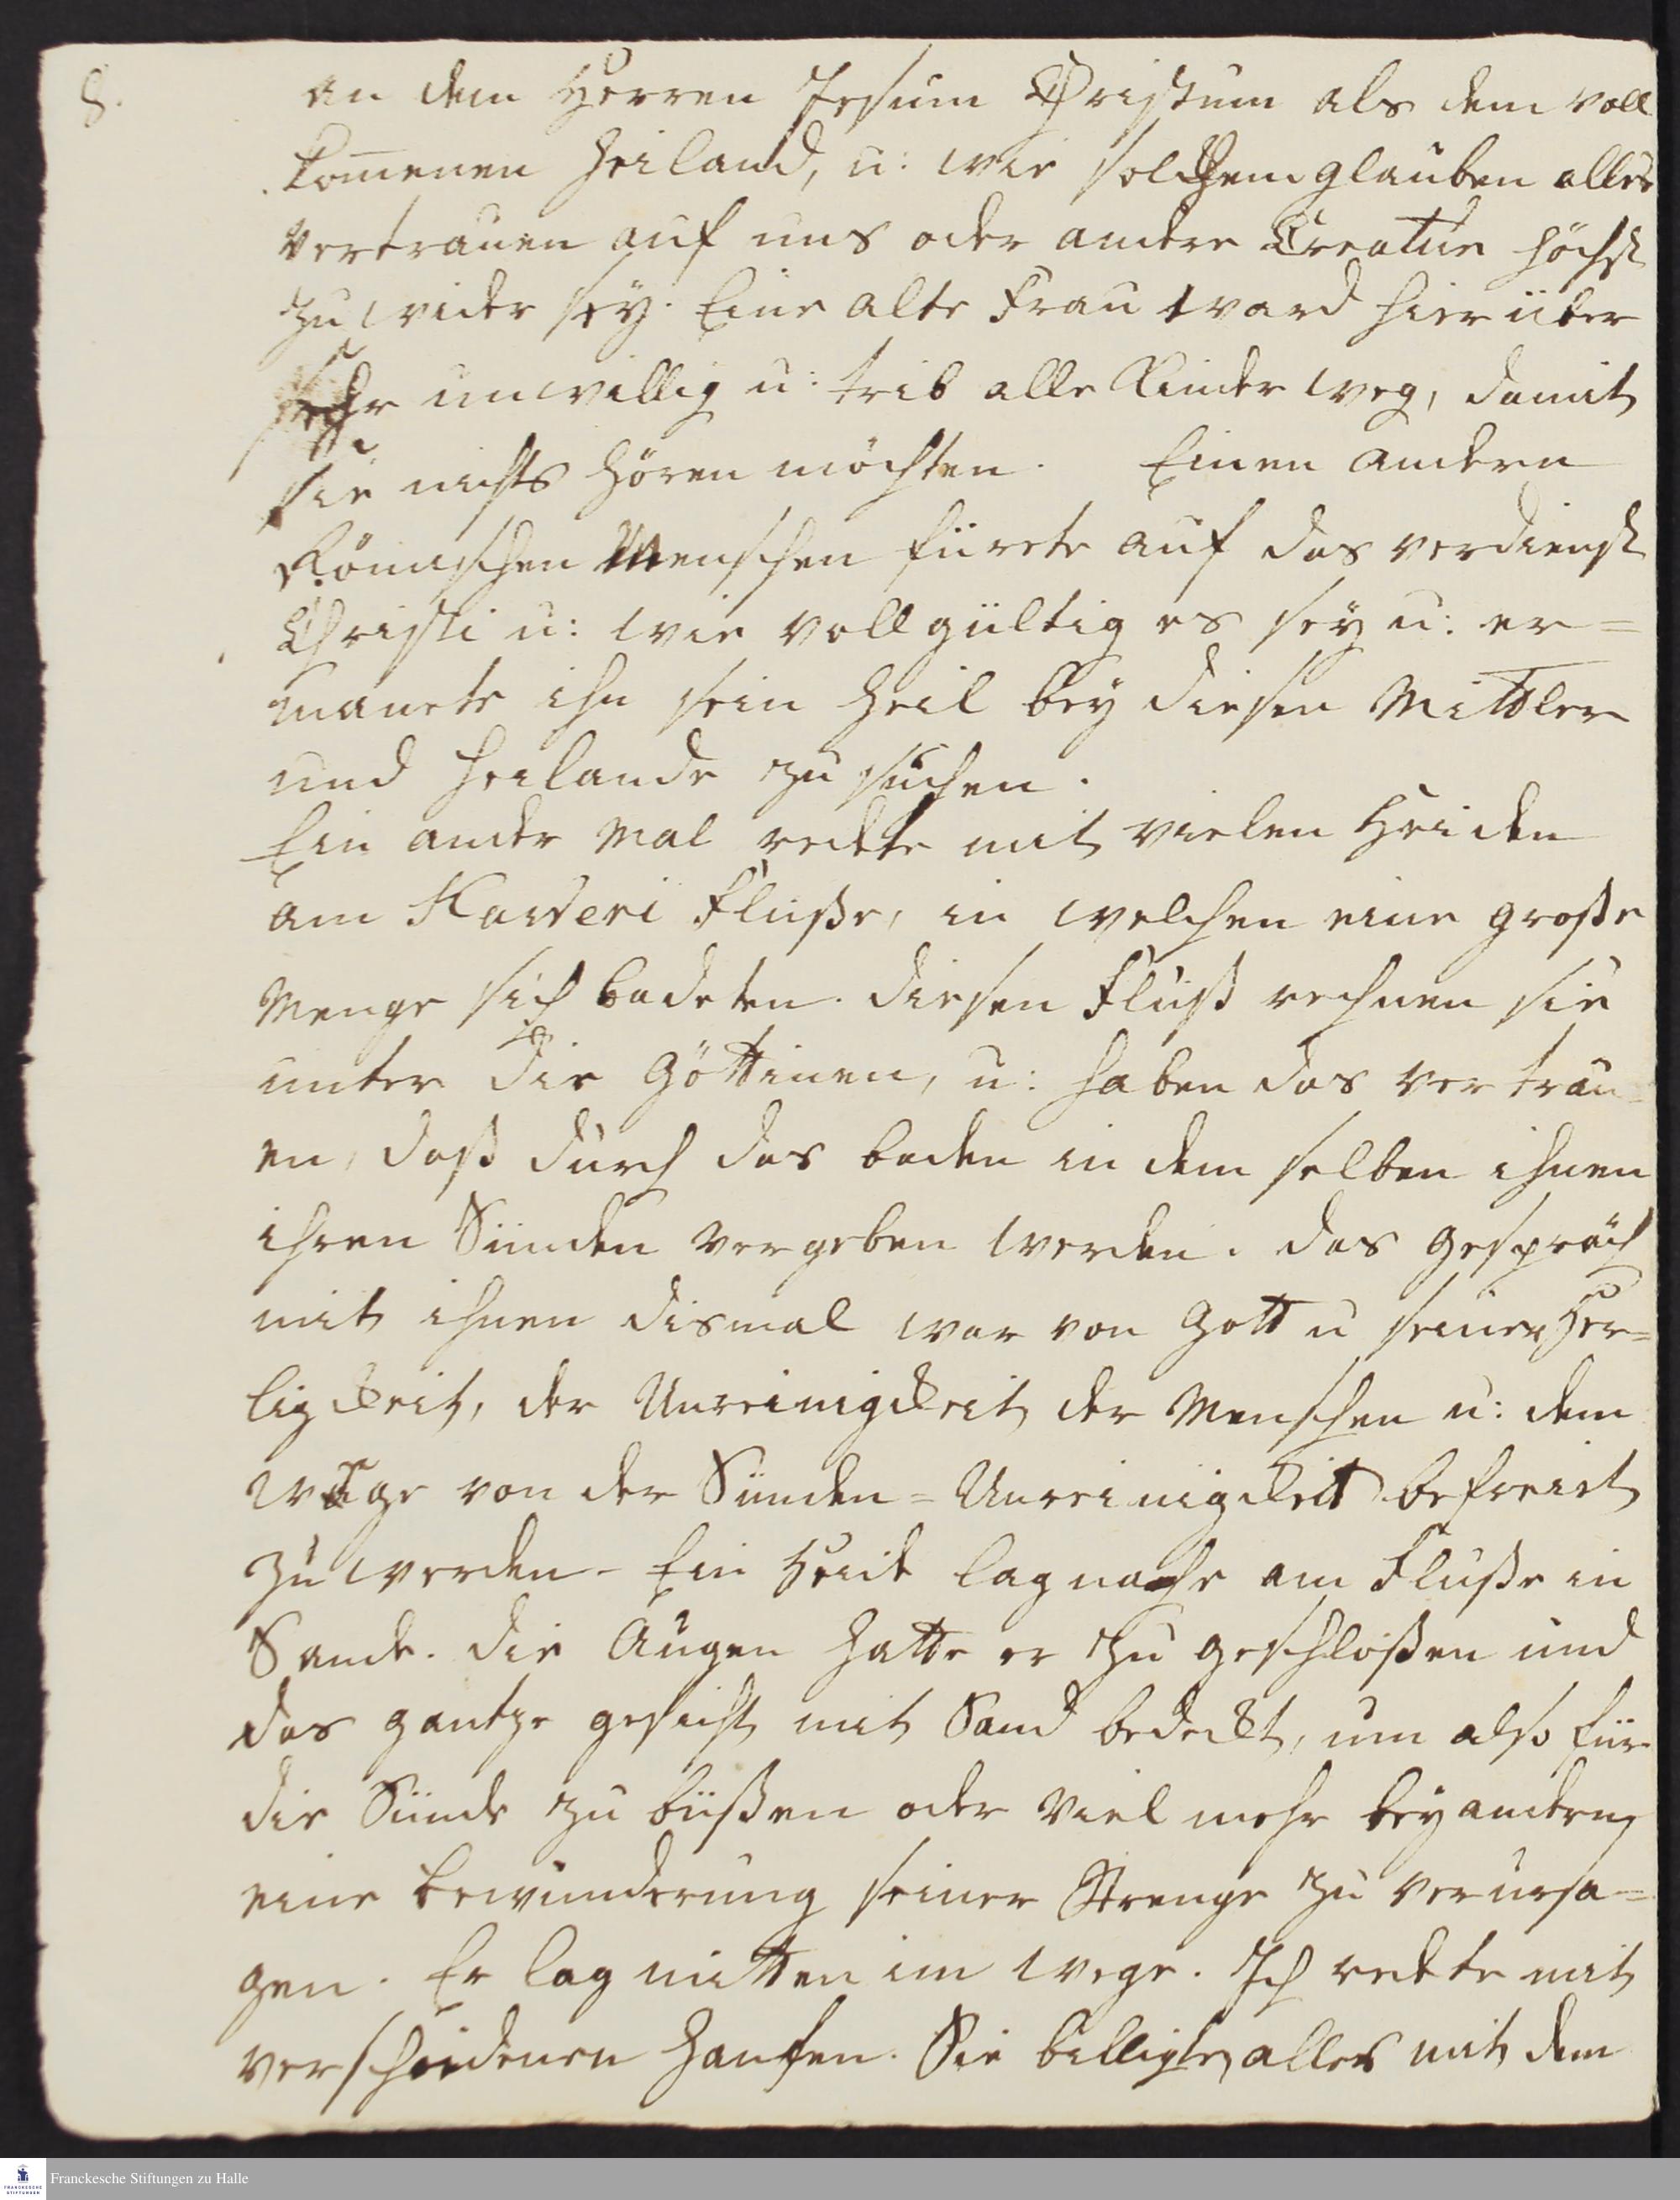 8.
an dem Herren Jesum Christum als dem voll
kom̄enen Heiland, u: wie solchem glauben alles
Vertrauen auf uns oder andre Creatur höchst
zu wider sey. Eine alte Frau ward hierüber
sehr unwillig u: trib alle Kinder weg, damit
sie nichts hören möchten. Einen andern
Römischen Menschen fürete auf das verdienst
Christi u: wie vollgültig es sey u: er=
manete ihn sein Heil bey diesen Mittler
und Heilande zu suchen.
Ein ander Mal redete mit vielen Heiden
am Kaweri Fluße, in welchen eine große
Menge sich badeten. diesen Fluß rechnen sie
unter die Göttinen, u: haben das vertrau=
en, daß durch das baden in dem selben ihnen
ihren Sünden vergeben werden. das Gespräch
mit ihnen dismal war von Gott u seiner Her=
ligkeit, der Unreinigkeit der Menschen u: dem
Wege von der Sünden=Unreinigkeit befreiet
zu werden. Ein Heide lag nahe am Fluße in
Sande. die Augen hatte er zu geschloßen und
das gantze gesicht mit Sand bedeckt, um also für
die Sünde zu büßen oder viel mehr bey andern
eine bewunderung seiner Strenge zu verursa=
gen. Er lag mitten im Wege. Ich redete mit
verscheidenen Haufen. Sie billigten alles mit dem
Franckesche Stiftungen zu Halle
FRANCKESCHE STIFTUNGEN